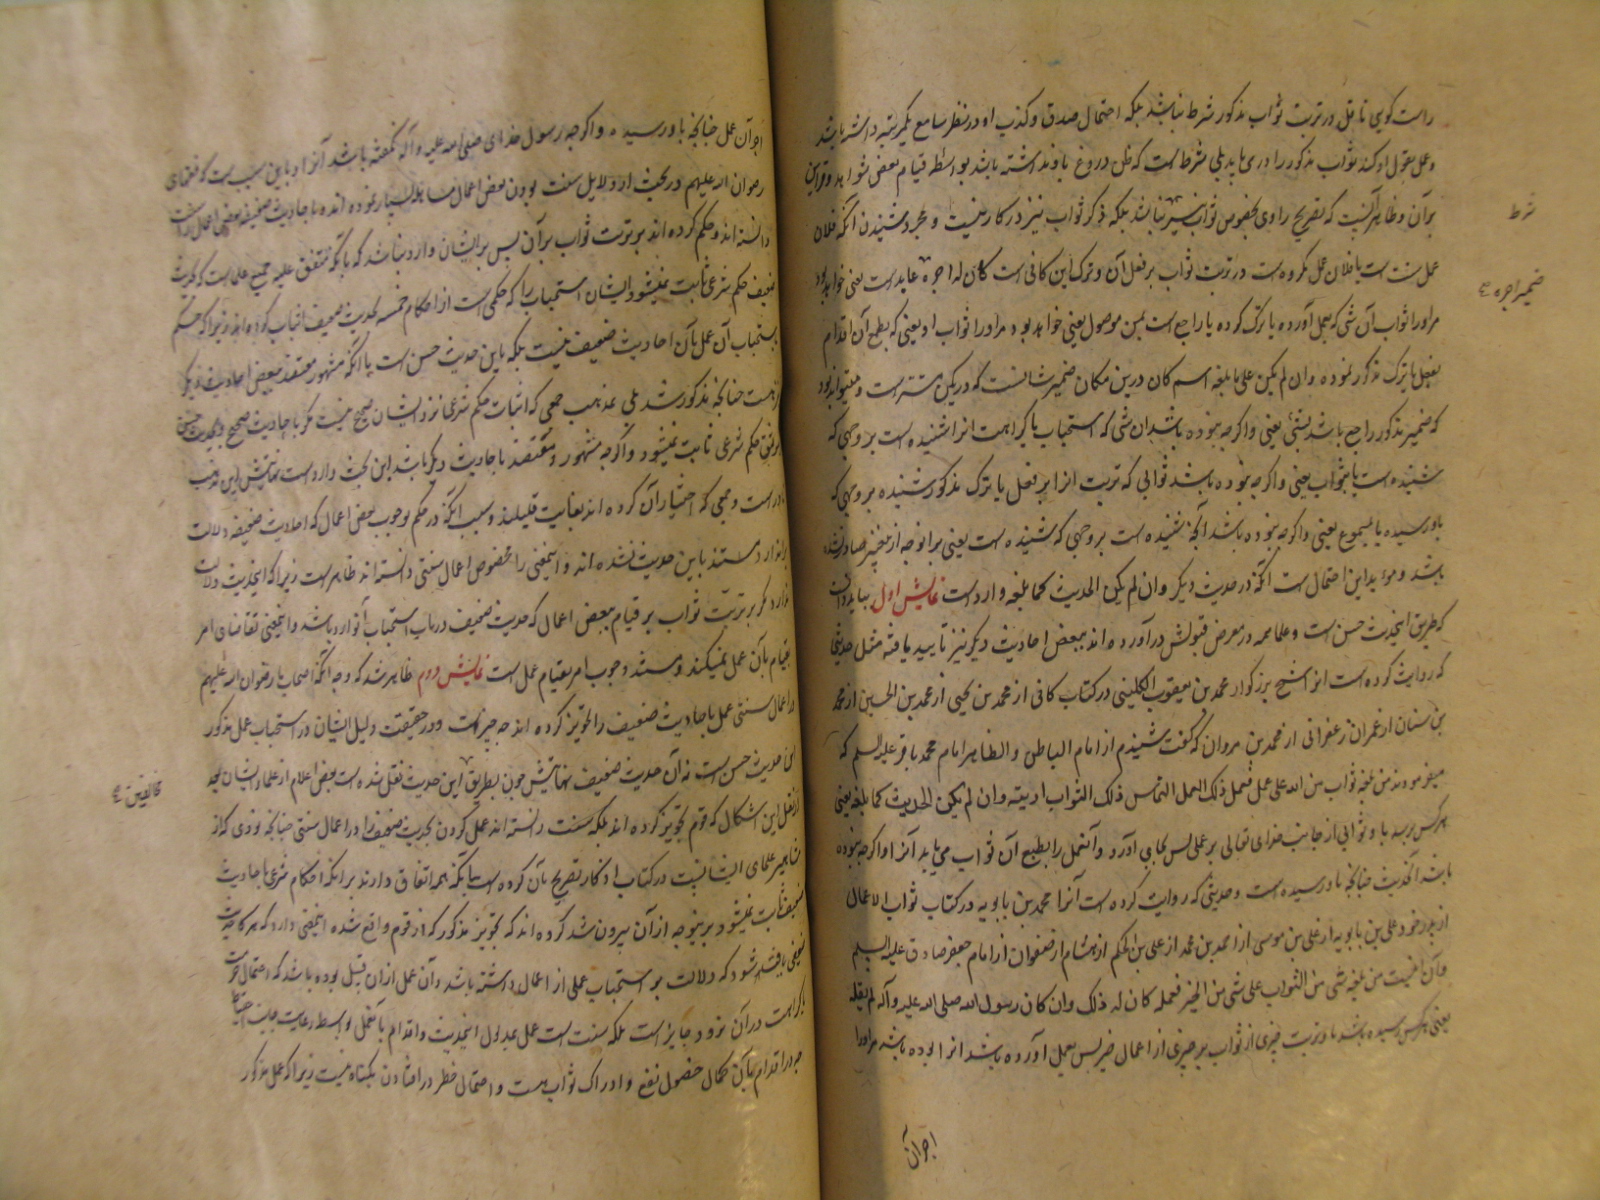 راست کوی ناقل در ترتب ثواب مذکور شرط نباشد بلکه احتمال صدق و کذب او در نظر سامع یکمرتبه داشته باشد
و عمل بقول او کند ثواب مذکور را دری یابد بلی شرط است که ظن دروغ باو نداشته باشد بواسطه قیام بعض شواهد و قراین
بر آن و ظاهر آنست که تصریح راوی بخصوص ثواب نیز نباشد بلکه ذکر ثواب نیز در کار نیست و مجرد شنیدن آنکه فلان
شرط
عمل سنت است یا فلان عمل مکروه است در ترتب ثواب بر فعل آن و ترک این کافی است کان له اجره عاید است یعنی خواهد بود
ضمیر اجره
مر او را ثواب آن شی که بعمل آورده یا ترک کرده یا راجع است بمن موصول یعنی خواهد بود مر او را ثواب او یعنی که بطمع آن اقدام
بفعل یا ترک مذکور نموده وان لم یکن علی ما بلغه اسم کان درین مکان ضمیر شانست که در یکن مستتر است و میتواند بود
که ضمیر مذکور راجع باشد بشئ یعنی واکرچه نبوده باشد ان شی که استحباب یا کراهت انرا شنیده است بر وجهی که
شنیده است یا بثواب یعنی واکرچه نبوده باشد ثوابی که ترتب انرا بر فعل یا ترک مذکور شنیده بر وجهی که
باو رسیده یا بمسموع یعنی واکرچه نبوده باشد آنچه شنیده است بر وجهی که شنیده است یعنی بر انوجه از معصوم صادر نشده
باشد و موید این احتمال است آنکه در حدیث دیکر وان لم یکن الحدیث کما بلغه وارد است نمایش اول بباید دانست
که طریق این حدیث حسن است و علما همه در معرض قبولش در آورده اند ببعض احادیث دیکر نیز تایید یافته مثل حدیثی
که روایت کرده است انرا شیخ بزرکوار محمد بن یعقوب الکلینی در کتاب کافی از محمد بن یحیی از محمد بن الحسین از محمد
بن سنان از عمران زعفرانی از محمد بن مروان که کفت شنیدم از امام الباطن و الظاهر امام محمد باقر علیه السلم که
میفرمودند من بلغه ثواب من الله علی عمل فعمل ذلک العمل التماس ذلک الثواب اوتیته وان لم یکن الحدیث کما بلغه یعنی
هر کس برسد باو ثوابی از جانب خدای تعالی بر عملی پس بجای آورد و آنعمل را بطمع آن ثواب می یابد آنرا و اکرچه نبوده
باشد آنحدیث چنانچه باو رسیده است و حدیثی که روایت کرده است آنرا محمد بن بابویه در کتاب ثواب الاعمال
از پدر خود علی بن بابویه از علی بن موسی از احمد بن محمد از علی بن الحکم از هشام از صفوان از امام جعفر صادق علیه السلم
و آن اینست من بلغه شی من الثواب علی شی من الخیر فعمله کان له ذلک وان کان رسول الله صلی الله علیه و آله لم یقله
یعنی هر کس رسیده باشد باو ترتب چیزی از ثواب بر چیزی از اعمال خیر پس بعمل آورده باشد انرا بوده باشد مر او را
اجر آن
اجر آن عمل چنانچه باو رسیده واکرچه رسول خدای صلی الله علیه و آله نکفته باشد آنرا و باین سبب است که فقهای
رضوان الله علیهم در بحث از دلایل سنت بودن بعض اعمال مساهله بسیار نموده اند و باحادیث ضعیفه بعضی اعمال را سنت
دانسته اند و حکم کرده اند بر ترتب ثواب بر آن پس بر ایشان وارد نباشد که با آنکه متفق علیه جمیع علما است که بحدیث
ضعیف حکم شرعی ثابت نمیشود ایشان استحباب را که حکمی است از احکام خمسه بحدیث ضعیف اثبات کرده اند زیرا که حکم
باستحباب آن عمل بآن احادیث ضعیف نیست بلکه باین حدیث حسن است با آنکه مشهور و معتضد ببعض احادیث دیکر
هست چنانچه مذکور شد بلی بمذهب جمعی که اثبات حکم شرعی نزد ایشان صحیح نیست مکر باحادیث صحیح و بحدیث حسن
و موثق حکم شرعی ثابت نمیشود واکرچه مشهور و معتضد باحادیث دیکر باشد این بحث وارد است نهایتش این مذهب
نادر است و جمعی که اختیار آن کرده اند بغایت قلیلند و سبب آنکه در حکم بوجوب بعض اعمال که احادیث ضعیفه دلالت
بر انوارد مستند باین حدیث نشده اند و اینمعنی را مخصوص اعمال سنتی دانسته اند ظاهر است زیرا که این حدیث دلالت
ندارد مکر بر ترتب ثواب بر قیام ببعض اعمال که حدیث ضعیف در باب استحباب آنوارد باشد و اینمعنی تقاضای امر
بقیام بآن عمل نمیکند و مستند وجوب امر بقیام عمل است نمایش دوم ظاهر شد که وجه آنکه اصحاب ما رضوان الله علیهم
در اعمال سنتی عمل باحادیث ضعیف را تجویز کرده اند چه چیز است و در حقیقت دلیل ایشان در استحباب عمل مذکور
این حدیث حسن است نه آن حدیث ضعیف نهایتش چون بطریق این حدیث نقل نشده است بعض اعلام از علماء ایشان بعد
مخالفین
از نقل این اشکال که قوم تجویز کرده اند بلکه سنت دانسته اند عمل کردن بحدیث ضعیف را در اعمال سنتی چنانچه نووی که از
مشاهیر علمای ایشانست در کتاب اذکار تصریح بآن کرده است با آنکه همه اتفاق دارند بر اینکه احکام شرعی باحادیث
ضعیف ثابت نمیشود بر ینوجه از آن بیرون شد کرده اند که تجویز مذکور که از قوم واقع شده اینمعنی دارد که هر کاه حدیث
ضعیفی یافته شود که دلالت بر استحباب عملی از اعمال داشته باشد و آن عمل از ان قبیل بوده باشد که احتمال حرمت
یا کراهت در آن نرود جایز است بلکه سنت است عمل بمدلول اینحدیث و اقدام بآنعمل بواسطه رعایت جانب احتیاط
چه در اقدام بآن کمال حصول نفع و ادراک ثواب هست و احتمال خطر در افتادن بکناه نیست زیرا که عمل مذکور